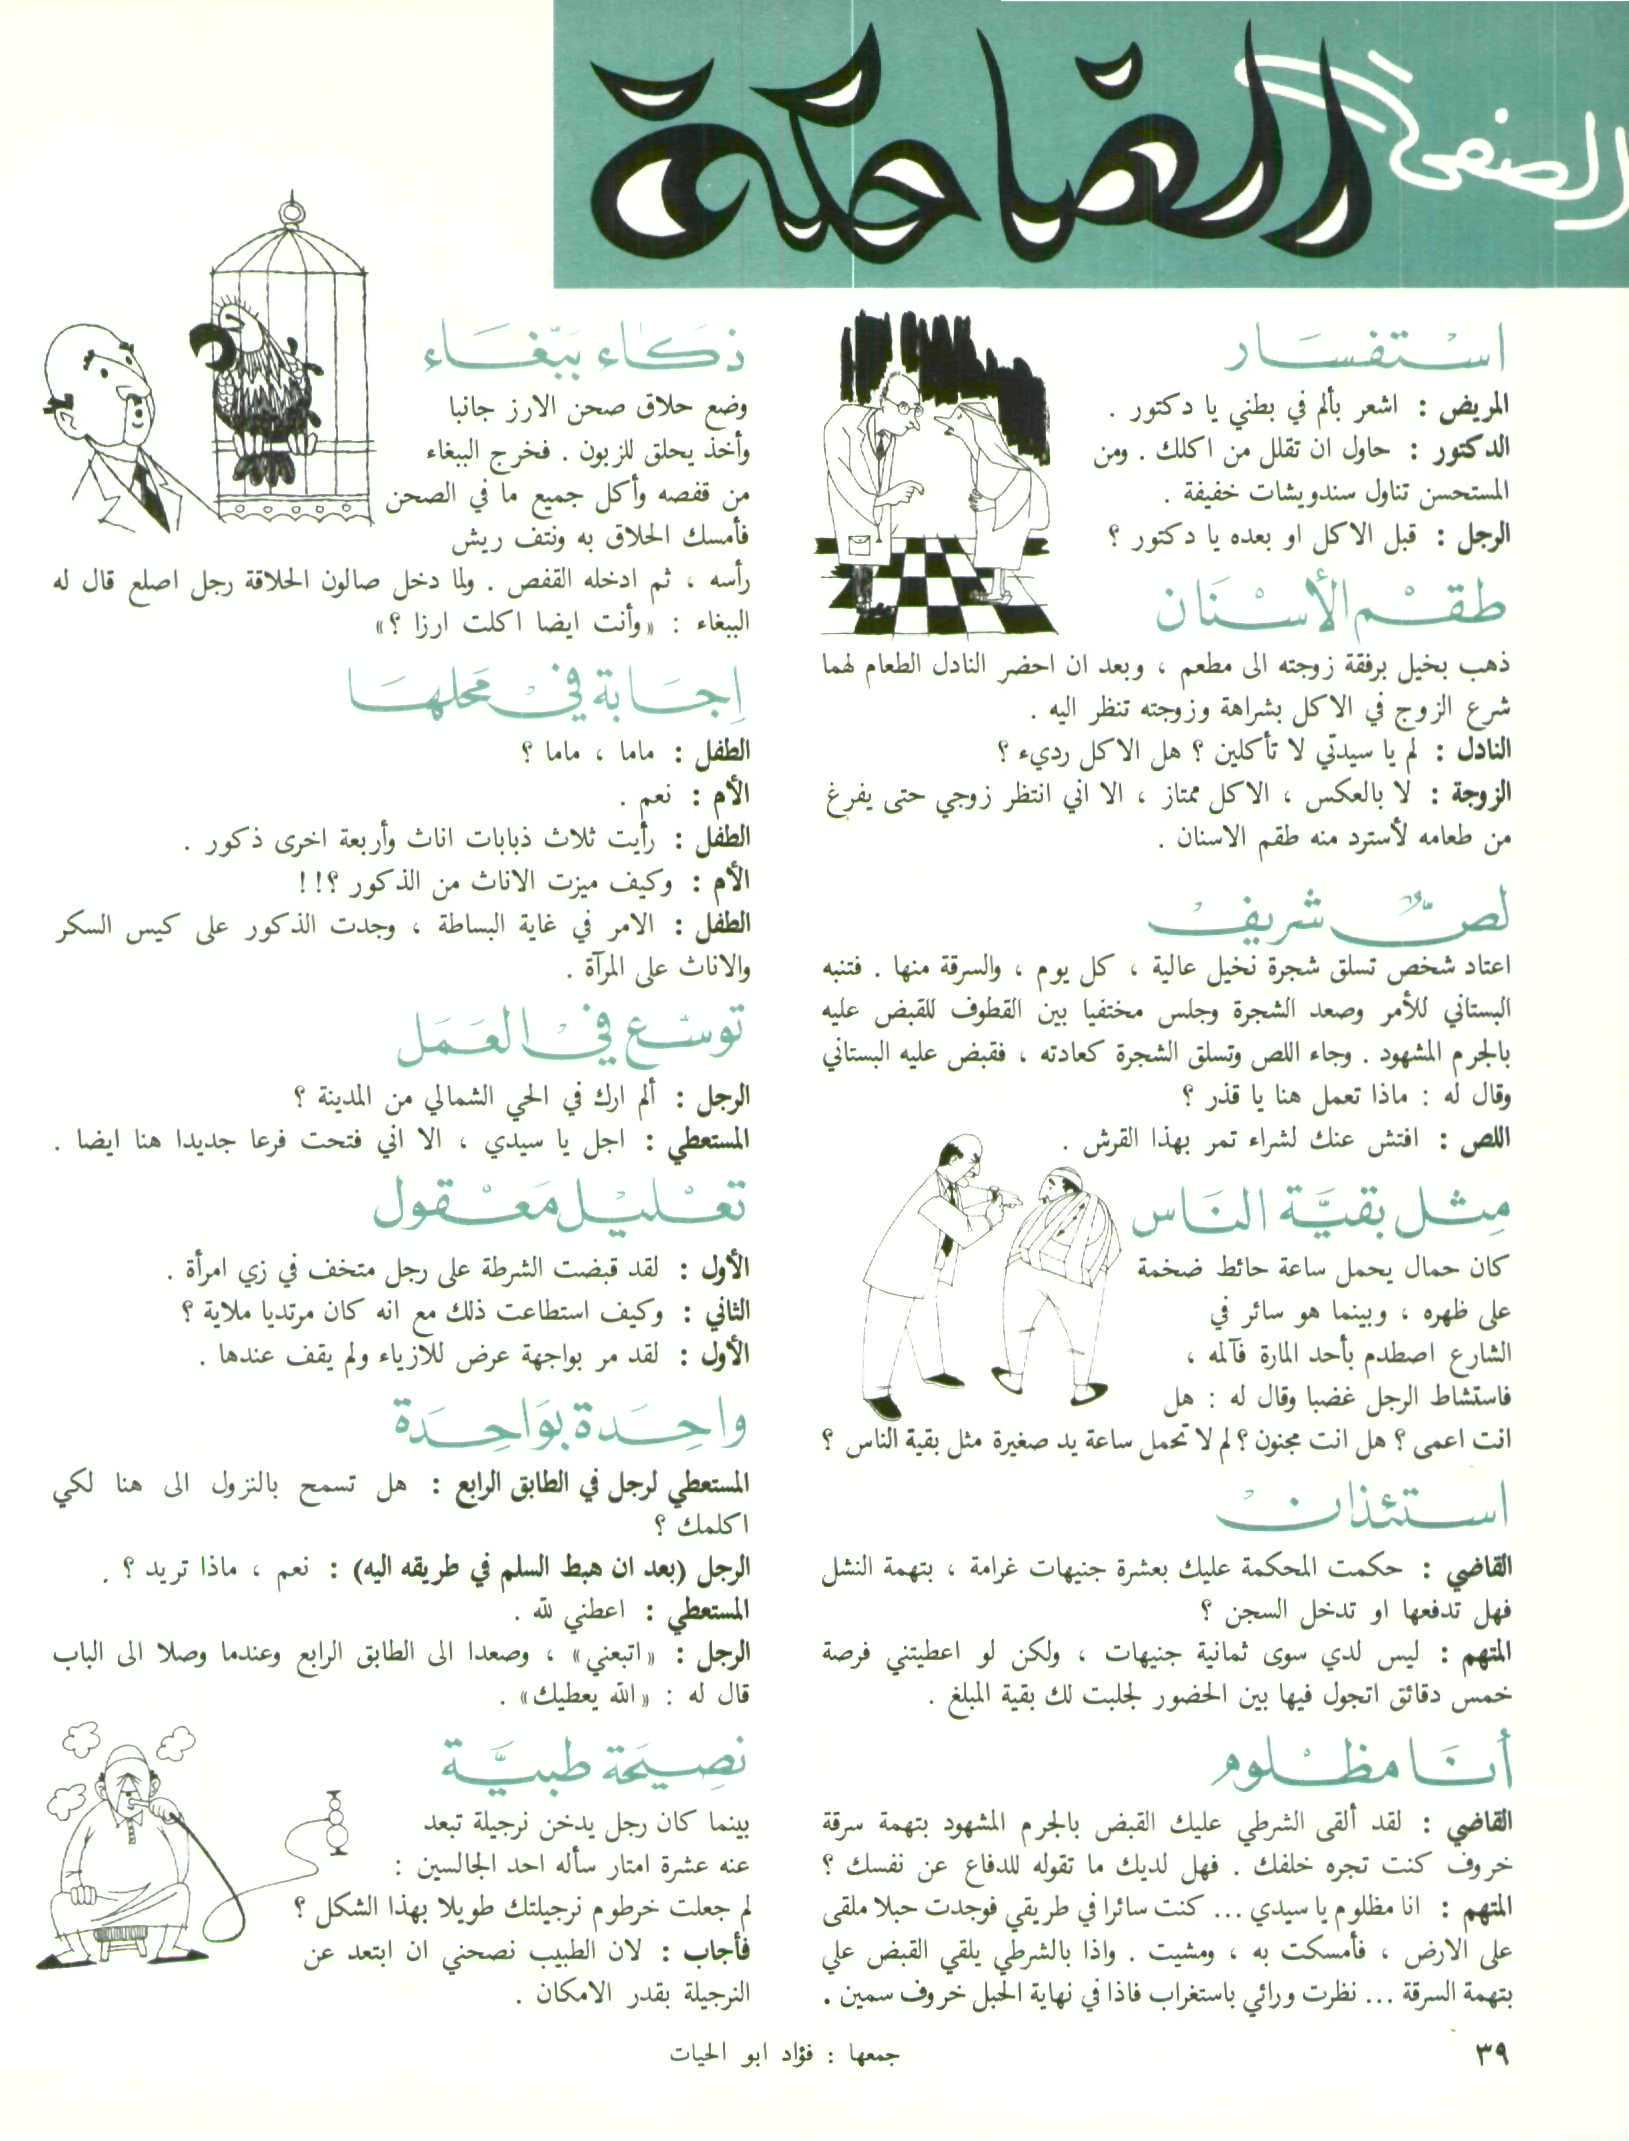 الصفحة
الضاحكة
استفسار
المريض : اشعر بألم في بطني يا دكتور .
الدكتور : حاول ان تقلل من اكلك . ومن
المستحسن تناول سندويشات خفيفة .
الرجل : قبل الاكل او بعده يا دكتور ؟
طقم الأسنان
ذهب بخيل برفقة زوجته الى مطعم ، وبعد ان احضر النادل الطعام لهما
شرع الزوج في الاكل بشراهة وزوجته تنظر اليه .
النادل : لم يا سيدتي لا تأكلين ؟ هل الاكل رديء ؟
الزوجة : لا بالعكس ، الاكل ممتاز ، الا اني انتظر زوجي حتى يفرغ
من طعامه لأسترد منه طقم الاسنان .
لصّ شريف
اعتاد شخص تسلق شجرة نخيل عالية ، كل يوم ، والسرقة منها . فتنبه
البستاني للأمر وصعد الشجرة وجلس مختفيا بين القطوف للقبض عليه
بالجرم المشهود . وجاء اللص وتسلق الشجرة كعادته ، فقبض عليه البستاني
وقال له : ماذا تعمل هنا يا قذر ؟
اللص : افتش عنك لشراء تمر بهذا القرش .
مِثل بقيَّة النَاس
كان حمال يحمل ساعة حائط ضخمة
على ظهره ، وبينما هو سائر في
الشارع اصطدم بأحد المارة فآلمه ،
فاستشاط الرجل غضبا وقال له : هل
انت اعمى ؟ هل انت مجنون ؟ لم لا تحمل ساعة يد صغيرة مثل بقية الناس ؟
استئذان
القاضي : حكمت المحكمة عليك بعشرة جنيهات غرامة ، بتهمة النشل
فهل تدفعها او تدخل السجن ؟
المتهم : ليس لدي سوى ثمانية جنيهات ، ولكن لو اعطيتني فرصة
خمس دقائق اتجول فيها بين الحضور لجلبت لك بقية المبلغ .
أنَا مظلوم
القاضي : لقد ألقى الشرطي عليك القبض بالجرم المشهود بتهمة سرقة
خروف كنت تجره خلفك . فهل لديك ما تقوله للدفاع عن نفسك ؟
المتهم : انا مظلوم يا سيدي ... كنت سائرا في طريقي فوجدت حبلا ملقى
على الارض ، فأمسكت به ، ومشيت . واذا بالشرطي يلقي القبض علي
بتهمة السرقة ... نظرت ورائي باستغراب فاذا في نهاية الحبل خروف سمين .
ذكَاء ببّغَاء
وضع حلاق صحن الارز جانبا
وأخذ يحلق للزبون . فخرج الببغاء
من قفصه وأكل جميع ما في الصحن
فأمسك الحلاق به ونتف ريش
رأسه ، ثم ادخله القفص . ولما دخل صالون الحلاقة رجل اصلع قال له
الببغاء : «وأنت ايضا اكلت ارزا ؟»
إجَابة في مَحلهَا
الطفل : ماما ، ماما ؟
الأم : نعم .
الطفل : رأيت ثلاث ذبابات اناث وأربعة اخرى ذكور .
الأم : وكيف ميزت الاناث من الذكور ؟!!
الطفل : الامر في غاية البساطة ، وجدت الذكور على كيس السكر
والاناث على المرآة .
توسّع في العَمَل
الرجل : ألم ارك في الحي الشمالي من المدينة ؟
المستعطي : اجل يا سيدي ، الا اني فتحت فرعا جديدا هنا ايضا .
تعْليْل مَعْقول
الأول : لقد قبضت الشرطة على رجل متخف في زي امرأة .
الثاني : وكيف استطاعت ذلك مع انه كان مرتديا ملاية ؟
الأول : لقد مر بواجهة عرض للازياء ولم يقف عندها .
واحِدَة بوَاحِدَة
المستعطي لرجل في الطابق الرابع : هل تسمح بالنزول الى هنا لكي
اكلمك ؟
الرجل (بعد ان هبط السلم في طريقه اليه) : نعم ، ماذا تريد ؟ .
المستعطي : اعطني لله .
الرجل : «اتبعني» ، وصعدا الى الطابق الرابع وعندما وصلا الى الباب
قال له : «الله يعطيك» .
نصِيحَة طبيَّة
بينما كان رجل يدخن نرجيلة تبعد
عنه عشرة امتار سأله احد الجالسين :
لم جعلت خرطوم نرجيلتك طويلا بهذا الشكل ؟
فأجاب : لان الطبيب نصحني ان ابتعد عن
النرجيلة بقدر الامكان .
جمعها : فؤاد ابو الحيات
٣٩